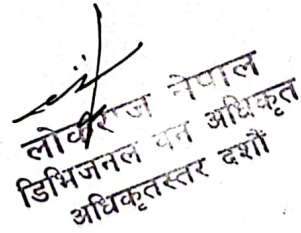 लोकराज नेपाल
डिभिजनल वन अधिकृत
अधिकृतस्तर दशौं